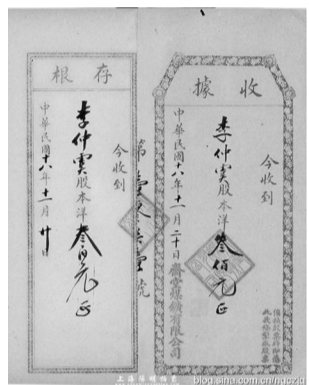 收據
今收到
李仲實股本洋叁佰元正
中華民國十八年十一月二十日
齋堂煤礦有限公司
存根
今收到
李仲實股本洋叁百元正
中華民國十八年十一月廿日
blog.sina.com.cn/nuczlq